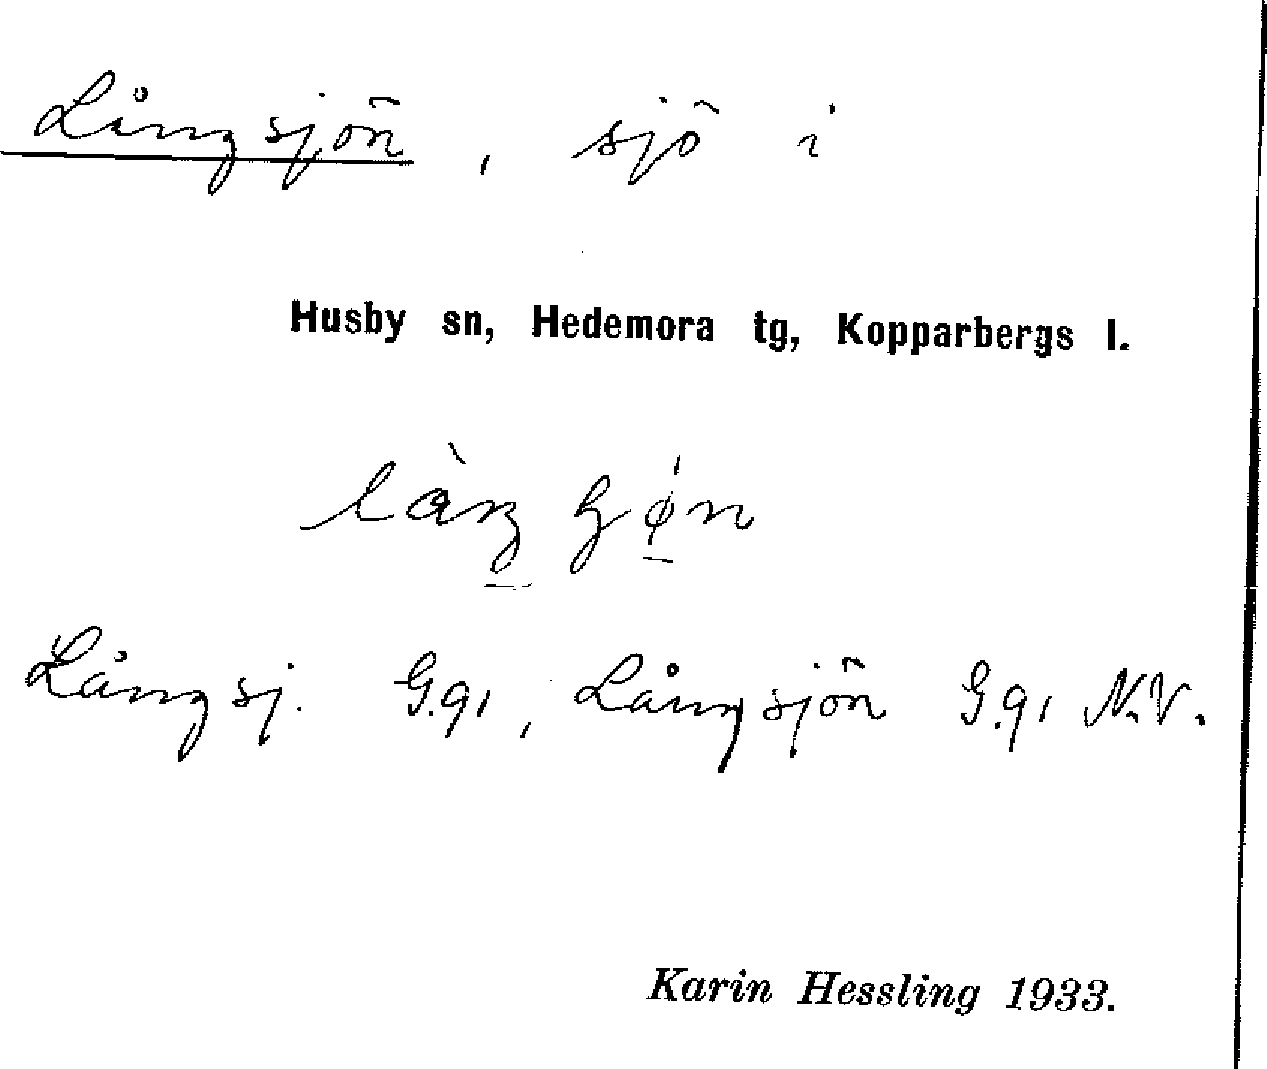 Långsjön, sjö i
Husby sn, Hedemora tg, Kopparbergs l.
Långsj. G.91, Långsjön G.91 N.V.
Karin Hessling 1933.